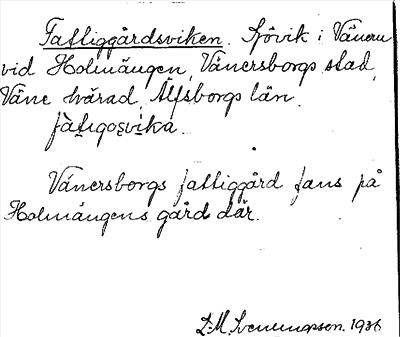 Fattiggårdsviken. Sjövik i Vänern
vid Holmängen, Vänersborgs stad,
Väne härad, Älfsborgs län.
fàt̬igoṣvi̬ka.
Vänersborgs fattiggård fans på
Holmängens gård där.
D.M. Svenungsson. 1936